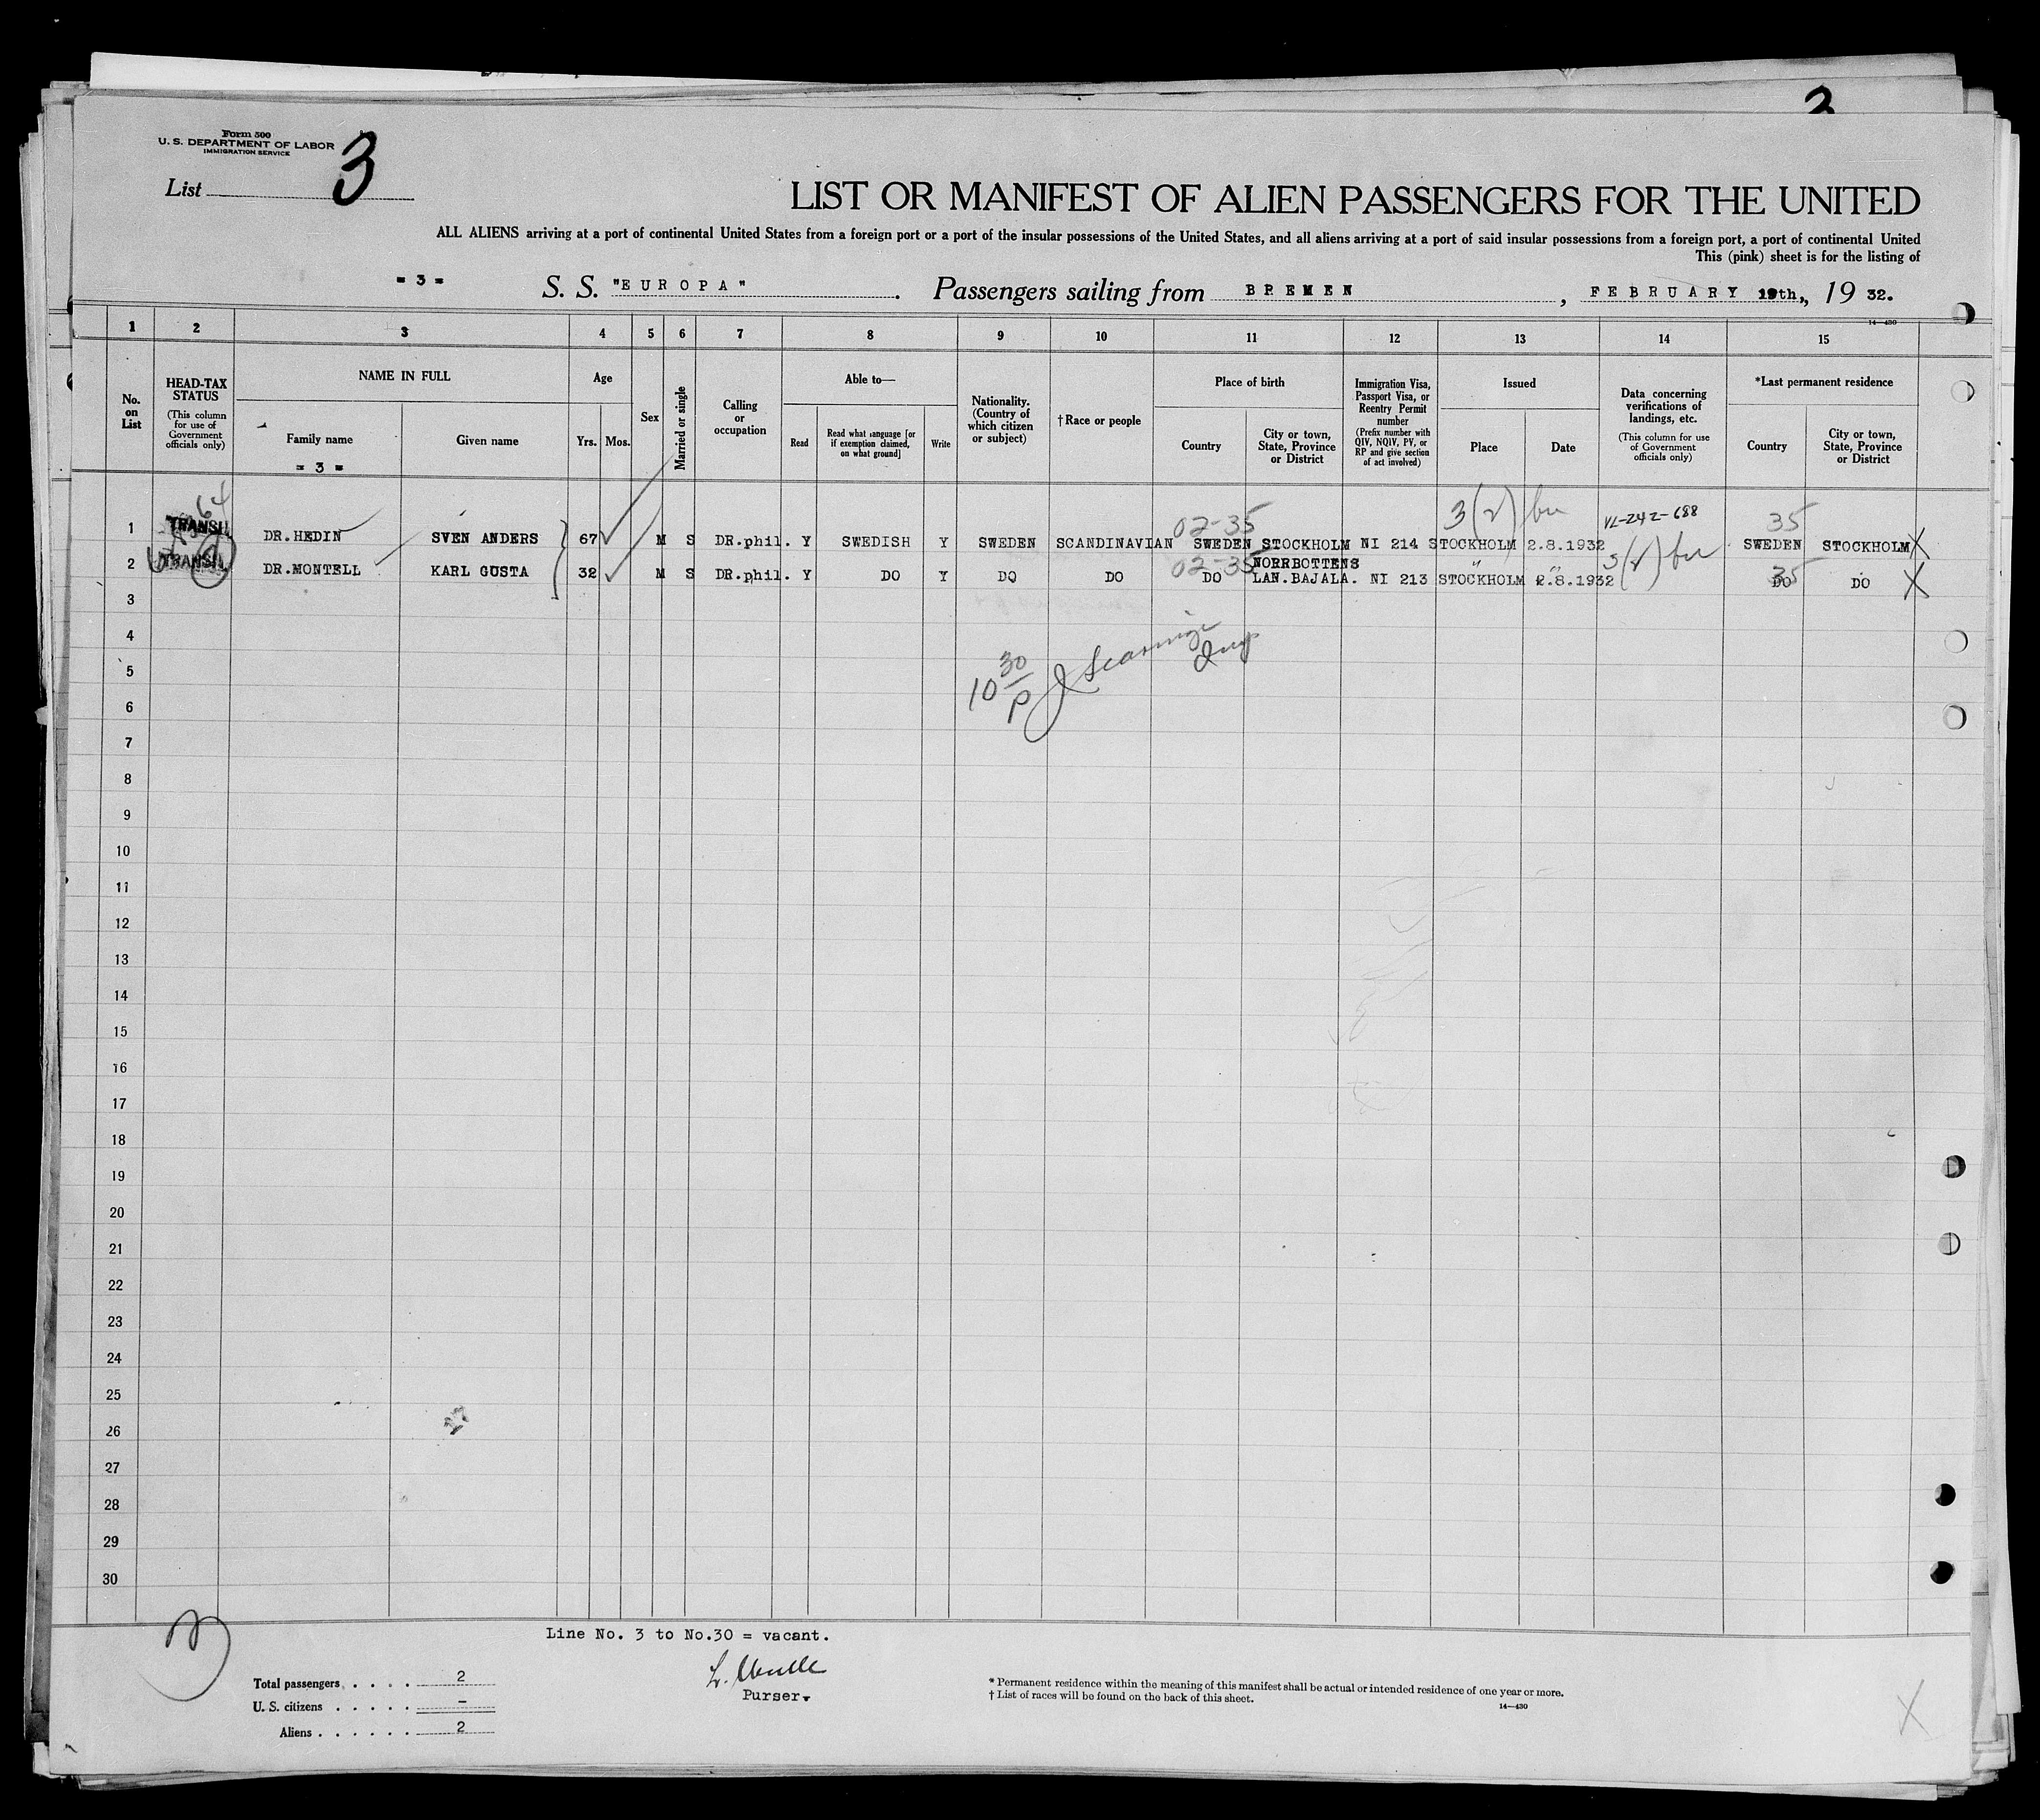 3
Form 500
U. S. DEPARTMENT OF LABOR
IMMIGRATION SERVICE
List 3
LIST OR MANIFEST OF ALIEN PASSENGERS FOR THE UNITED
ALL ALIENS arriving at a port of continental United States from a foreign port or a port of the insular possessions of the United States, and all aliens arriving at a port of said insular possessions from a foreign port, a port of continental United
This (pink) sheet is for the listing of
= 3 = S. S. "EUROPA". Passengers sailing from BREMEN, FEBRUARY 19th, 19 32.
14—430
1 2 3 4 5 6 7 8 9 10 11 12 13 14 15
No. on List
HEAD-TAX STATUS
(This column for use of Government officials only)
NAME IN FULL
Family name
= 3 =
Given name
Age
Yrs. Mos.
Sex
Married or single
Calling or occupation
Able to—
Read
Read what language [or if exemption claimed, on what ground]
Write
Nationality. (Country of which citizen or subject)
† Race or people
Place of birth
Country
City or town, State, Province or District
Immigration Visa, Passport Visa, or Reentry Permit number
(Prefix number with QIV, NQIV, PV, or RP and give section of act involved)
Issued
Place
Date
Data concerning verifications of landings, etc.
(This column for use of Government officials only)
*Last permanent residence
Country
City or town, State, Province or District
64 02-35 3(2) VL-242-688 35
1 TRANSIT DR.HEDIN SVEN ANDERS 67 M S DR.phil. Y SWEDISH Y SWEDEN SCANDINAVIAN SWEDEN STOCKHOLM NI 214 STOCKHOLM 2.8.1932 SWEDEN STOCKHOLM X
02-35 NORRBOTTENS " " 3(2) 35
2 TRANSIT DR.MONTELL KARL GOSTA 32 M S DR.phil. Y DO Y DO DO DO LAN.BAJALA. NI 213 STOCKHOLM 2.8.1932 DO DO X
3
4
5
10 30/P
6
7
8
9
10
11
12
13
14
15
16
17
18
19
20
21
22
23
24
25
26
27
28
29
30
Line No. 3 to No.30 = vacant.
Purser.
Total passengers . . . . 2
U. S. citizens . . . . . –
Aliens . . . . . . 2
* Permanent residence within the meaning of this manifest shall be actual or intended residence of one year or more.
† List of races will be found on the back of this sheet.
14—430
X